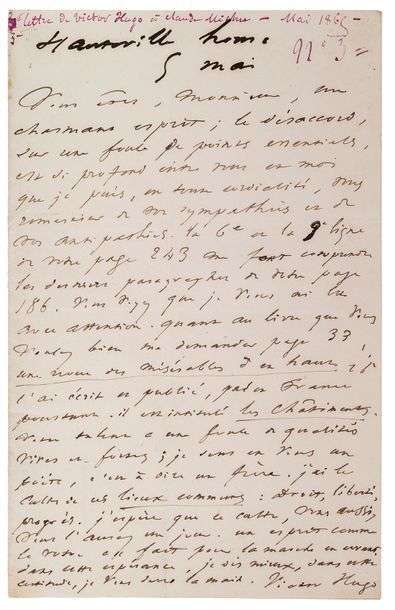 lettre de Victor Hugo à Claude — Mai 186
Hauteville house
5 mai
n° 3
Vous êtes, Monsieur, un
charmant esprit ; le désaccord,
sur une foule de points essentiels,
est si profond entre vous et moi
que je puis, en toute cordialité, vous
remercier de vos sympathies et de
vos antipathies. la 6e et la 9e ligne
de votre page 243 me font comprendre
les derniers paragraphes de votre page
186. Vous voyez que je vous ai lu
avec attention. quant au livre que vous
voulez bien me demander page 37,
une revue des misérables d'en haut,
l'ai écrit et publié, pas en France
pourtant. il est intitulé les Châtiments.
Votre talent a une foule de qualités
vives et fortes ; je sens en vous un
poète, c'est à dire un frère. j'ai le
culte de ces lieux communs : droit, liberté,
progrès. j'espère que ce culte, vous aussi,
vous l'aurez un jour. un esprit comme
le votre est fait pour la marche en avant.
dans cette espérance, je dis mieux, dans cette
certitude, je vous serre la main. Victor Hugo